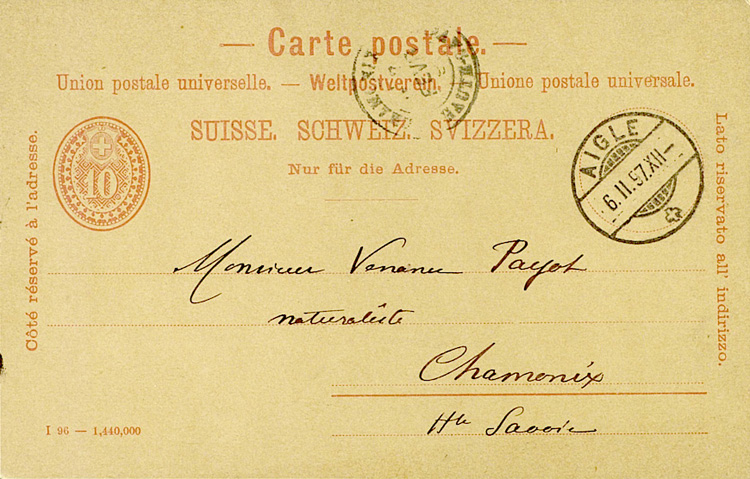 — Carte postale. —
Union postale universelle. — Weltpostverein. — Unione postale universale.
SUISSE. SCHWEIZ. SVIZZERA.
Nur für die Adresse.
Côté réservé à l'adresse.
Lato riservato all' indirizzo.
10
AIGLE
6.II.97.XII—
Monsieur Venance Payot
naturaliste
Chamonix
Hte Savoie
I 96 — 1,440,000